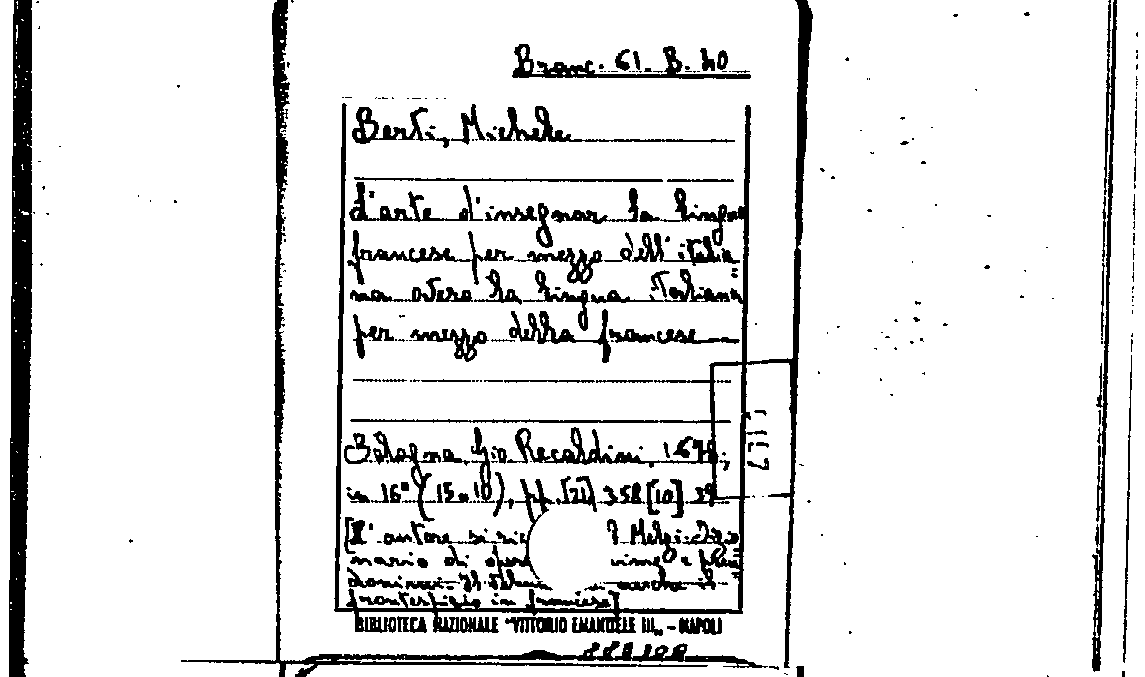 Branc. 61. B. 40
Berti, Michele
L'arte d'insegnar la lingua
francese per mezzo dell'italia=
na overo la lingua Italiana
per mezzo della francese
Bologna, Gio Recaldini, 1678;
in 16° (15x10), pp. [21] 358 [10] 39
[L'autore si ric Melzi: Dizio
nario di oper e pseu=
donimi. Il manca il
frontespizio in francese]
BIBLIOTECA NAZIONALE "VITTORIO EMANUELE III„ - NAPOLI